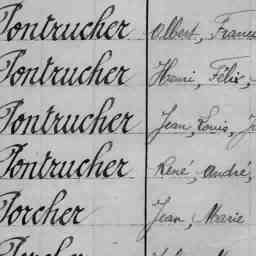 Pontrucher Albert, Franc
Pontrucher Henri, Félix,
Pontrucher Jean, Louis, J
Pontrucher René, André,
Porcher Jean, Marie